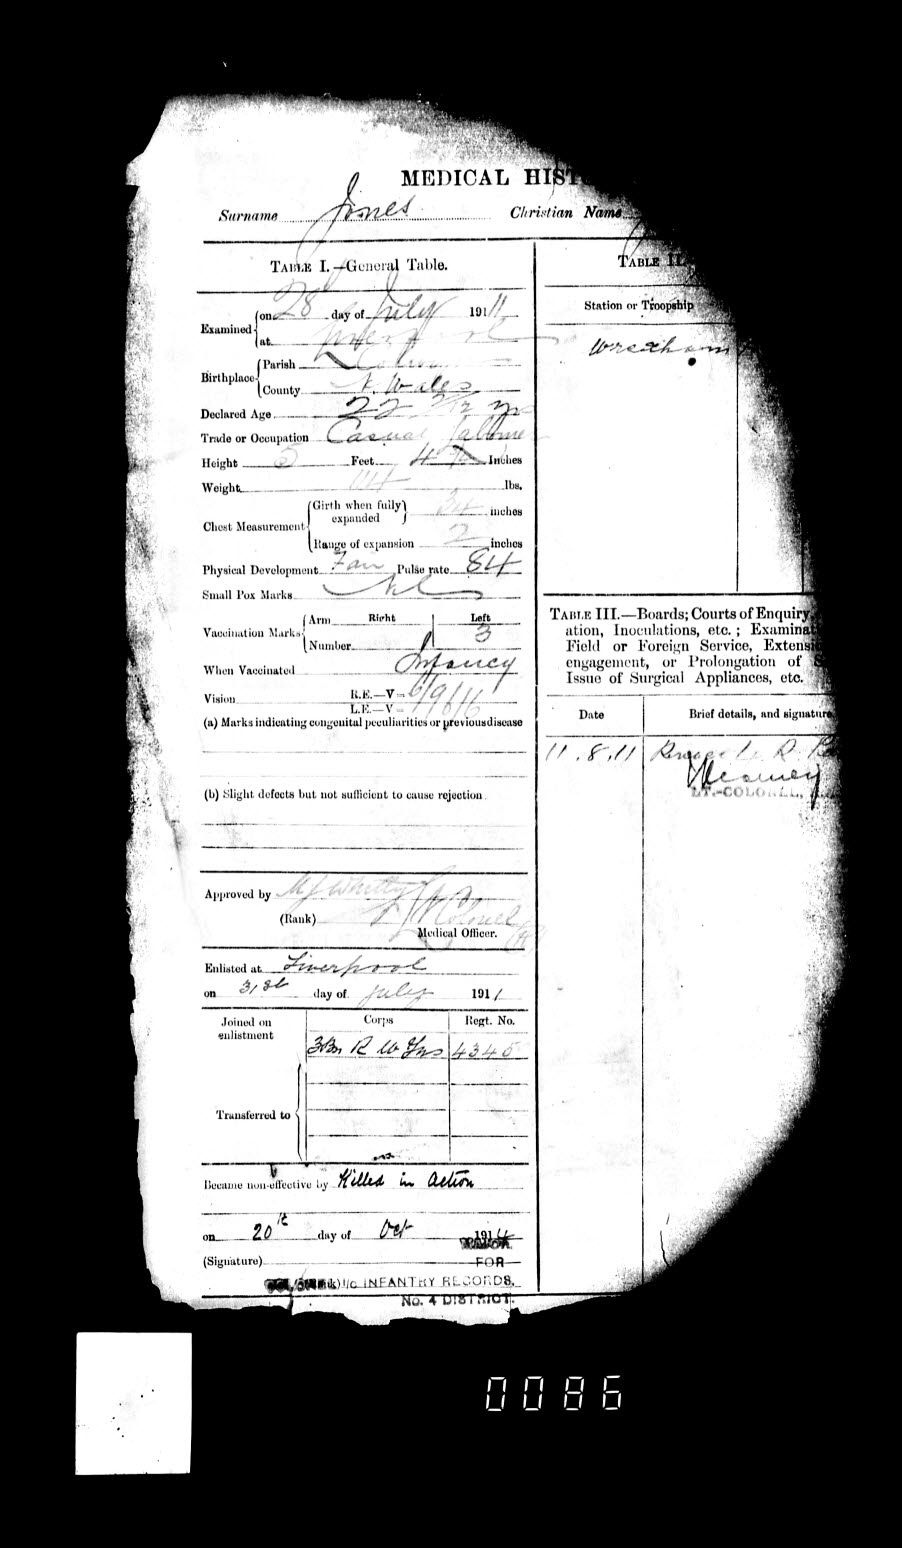 MEDICAL HIST
Surname Jones Christian Name
TABLE I.—General Table.
Examined on 28 day of July 1911
at Liverpool
Birthplace Parish
County N. Wales
Declared Age 22 2/12 yrs
Trade or Occupation Casual Labourer
Height 5 Feet 4 Inches
Weight lbs.
Chest Measurement Girth when fully expanded 34 inches
Range of expansion 2 inches
Physical Development Fair Pulse rate 84
Small Pox Marks Nil
Vaccination Marks Arm Right Left
Number 3
When Vaccinated Infancy
Vision R.E.—V = 6/9
L.E.—V = 6/6
(a) Marks indicating congenital peculiarities or previous disease
(b) Slight defects but not sufficient to cause rejection
Approved by M J Whitty
(Rank) Lt Colonel
Medical Officer.
Enlisted at Liverpool
on 31st day of July 1911
Joined on enlistment Corps Regt. No.
3 Bn R W Fus 4345
Transferred to
Became non-effective by Killed in action
on 20th day of Oct 1914
(Signature)
FOR
I/C INFANTRY RECORDS,
No. 4 DISTRICT.
TABLE II.
Station or Troopship
Wrexham
TABLE III.—Boards; Courts of Enquiry
ation, Inoculations, etc.; Examinat
Field or Foreign Service, Extensi
engagement, or Prolongation of S
Issue of Surgical Appliances, etc.
Date Brief details, and signature
11.8.11
LT.-COLONEL,
0086